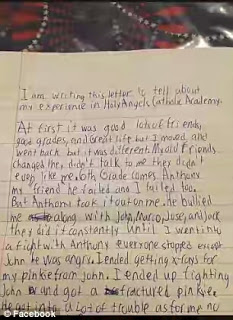 I am writing this letter to tell about
my experience in Holy Angels Catholic Academy.
At first it was good lots of friends,
good grades, and great life, but I moved and
went back but it was different. My old friends
changed they didn't talk to me they didn't
even like me. 6th Grade comes. Anthony
my friend he failed and I failed too.
But Anthony took it out on me. he bullied
me along with John, Marco, Jose, and Jack
they did it constently until I went into
a fight with Anthony everyone stopped except
John he was angry. I ended getting x-rays for
my pinkie from John. I ended up fighting
John and got a fractured pinkie.
he got into a lot of trouble as for me no
© Facebook